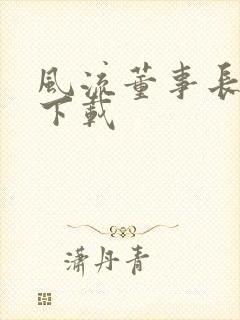 風流董事長
下載
瀟丹青